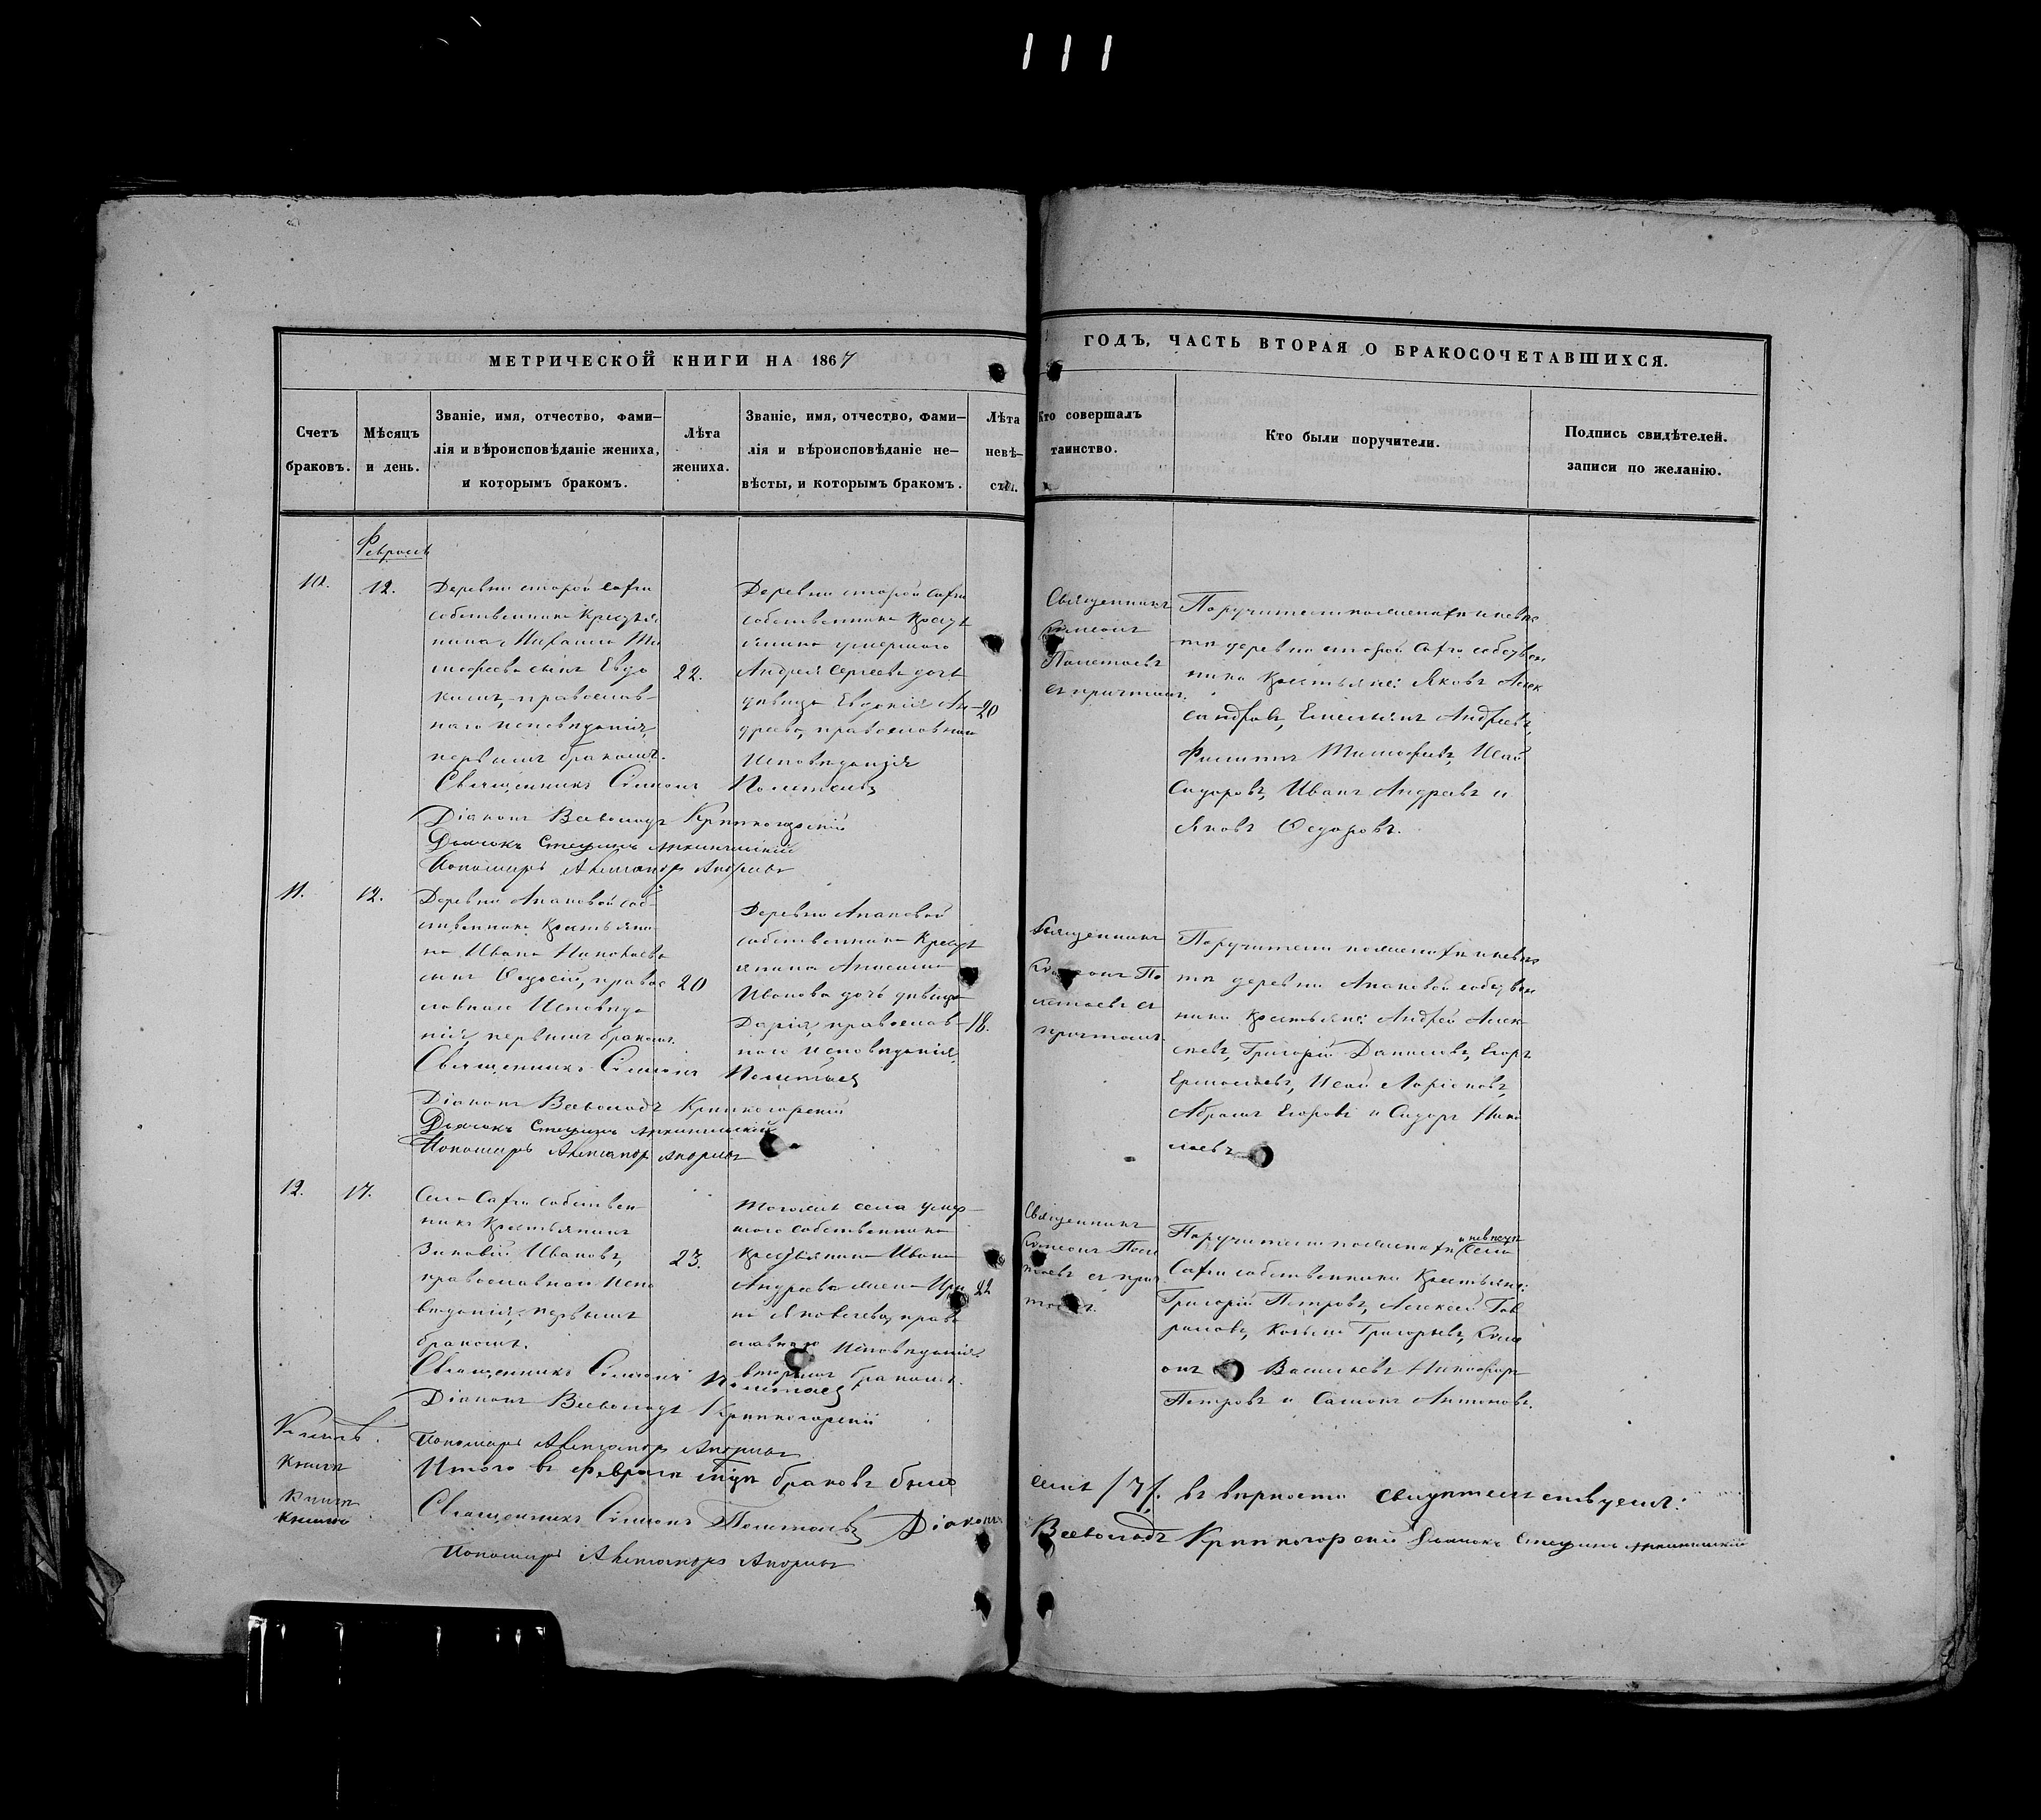 111
МЕТРИЧЕСКОЙ КНИГИ НА 1867
ГОДЪ, ЧАСТЬ ВТОРАЯ О БРАКОСОЧЕТАВШИХСЯ.
Счетъ
браковъ.
Мѣсяцъ
и день.
Званіе, имя, отчество, фами-
лія и вѣроисповѣданіе жениха,
и которымъ бракомъ.
Лѣта
жениха.
Званіе, имя, отчество, фами-
лія и вѣроисповѣданіе не-
вѣсты, и которымъ бракомъ.
Лѣта
невѣ-
сты.
Кто совершалъ
таинство.
Кто были поручители.
Подпись свидѣтелей.
записи по желанію.
Февраль
10.
12.
Деревни старой
собственника Крестья
нина Михаила Ти
мофеева сынъ Евдо
кимъ, православ-
наго исповѣданія,
первымъ бракомъ.
22.
Деревни старой
собственника Кресть
янина умершаго
Андрея Сергеева дочь
дѣвица Евдокія Ан-
дреева, православнаго
исповѣданія
20
Священникъ
Симеонъ
Полетаевъ
съ причтомъ.
Поручители по женихѣ и невѣс
тѣ деревни старой собствен
ники Крестьяне: Яковъ Алек
сандровъ, Емельянъ Андреевъ,
Филиппъ Тимофеевъ, Исай
Сидоровъ, Иванъ Андреевъ и
Яковъ Ѳедоровъ.
Священникъ Симеонъ Полетаевъ
Діаконъ Всеволодъ
Дьячокъ Стефанъ
Пономарь Александръ
11.
12.
Деревни Апаковой соб-
ственника Крестьяни
на Ивана
сынъ Ѳедосій, право
славнаго Исповѣда
нія, первымъ бракомъ.
20
Деревни Апаковой
собственника Кресть
янина
Иванова дочь дѣвица
Дарія, православ-
наго исповѣданія.
18.
Священникъ
Симеонъ По
летаевъ съ
причтомъ.
Поручители по женихѣ и невѣс
тѣ деревни Апаковой собствен
ники Крестьяне: Андрей Алек
сеевъ, Григорій Даниловъ, Егоръ
Ермолаевъ, Исай Ларіоновъ,
Абрамъ Егоровъ и Сидоръ Нико
лаевъ
Священникъ Симеонъ Полетаевъ
Діаконъ Всеволодъ
Дьячокъ Стефанъ
Пономарь Александръ
12.
17.
Села собствен
никъ Крестьянинъ
Зиновій Ивановъ,
православнаго испо
вѣданія, первымъ
бракомъ.
23.
Тогожъ села умер-
шаго собственника
Крестьянина Ивана
Андреева жена Ири
на Яковлева, право
славнаго исповѣданія
вторымъ бракомъ.
22
Священникъ
Симеонъ Поле
таевъ съ прич
томъ.
Поручители по женихѣ и невѣстѣ села
собственники Крестьяне:
Григорій Петровъ, Алексей Гав
риловъ, Козьма Григорьевъ, Симе
онъ Васильевъ Никифоръ
Петровъ и Самсонъ Антоновъ.
Священникъ Симеонъ Полетаевъ
Діаконъ Всеволодъ
Пономарь Александръ
Итого въ Февралѣ м҃цѣ браковъ было
семь /7/. въ вѣрности свидѣтельствуемъ:
Священникъ Симеонъ Полетаевъ Діаконъ
Всеволодъ Дьячокъ Стефанъ
Пономарь Александръ